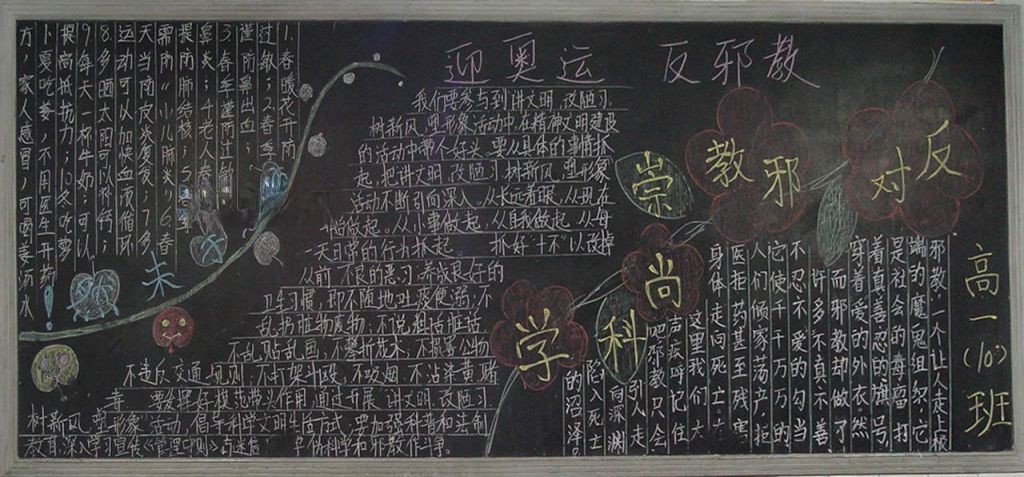 迎奥运 反邪教
反对邪教
崇尚科学
高一(10)班
1、春暖花开防
过敏;2春季
谨防鼻出血;
3春季谨防过敏
鼻炎;4老人春
提防肺结核;5春季
需防“小儿肺炎;6春
天当防皮炎复发;7多
运动可以加快血液循环
8多晒太阳可以补钙;
9每天一杯牛奶可以
提高抵抗力;10冬吃萝
卜夏吃姜,不用医生开药
方,家人感冒,可喝姜汤水!
我们要参与到讲文明,改陋习,
树新风,塑形象活动中,在精神文明建设
的活动中带个好头,要从具体的事情抓
起,把讲文明,改陋习树新风,塑形象
活动不断引向深入。从长远着眼,从现在
做起。从小事做起,从自我做起,从每
一天日常的行为抓起。 抓好“十不”以改掉
从前不良的恶习,养成良好的
卫生习惯,即不随地吐痰便溺;不
乱扔脏物废物;不说粗话脏话
不乱贴乱画;不攀折花木;不损害公物
不违反交通规则;不打架斗殴;不吸烟;不沾染黄赌
毒 要发挥好模范带头作用,通过开展“讲文明,改陋习
树新风,塑形象”活动,倡导科学文明生活方式,要加强科普和法制
教育,深入学习宣传
邪教,一个让人走上极
端的魔鬼组织,它
是社会的毒瘤,打
着真善忍的旗号,
穿着爱的外衣。然
而邪教却做了
许多不真不善
不忍不爱的勾当
它使千千万万的
人们倾家荡产,拒
医拒药甚至残害
身体,走向死亡。
这里我们大
声疾呼记住
吧邪教只会
引人走
向深渊
陷入死亡
的沼泽。